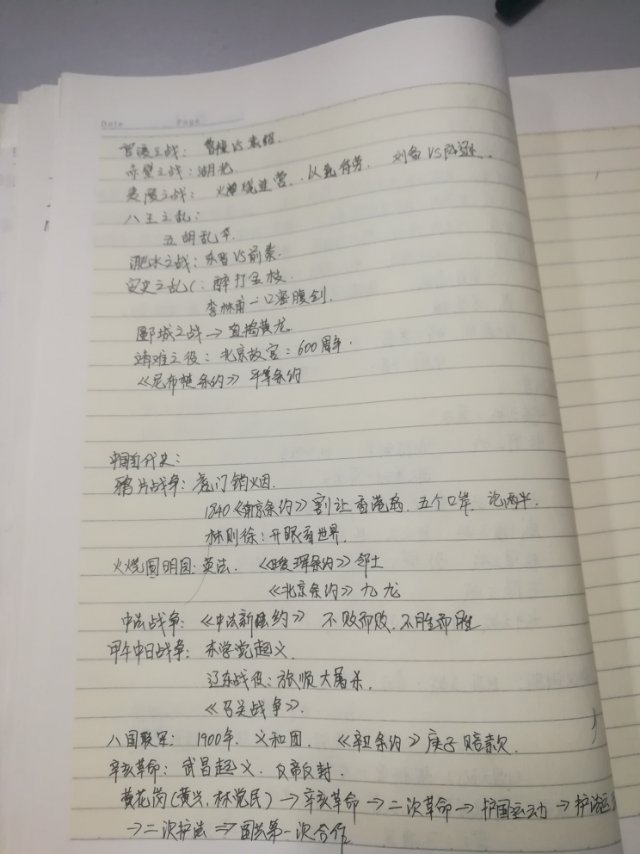 Date Page
官渡之战：曹操VS袁绍.
赤壁之战：湖北
夷陵之战：火烧连营.以逸待劳. 刘备VS陆逊.
八王之乱：
五胡乱华.
淝水之战：东晋VS前秦.
安史之乱：醉打金枝.
李林甫一口蜜腹剑.
郾城之战→直捣黄龙.
靖难之役：北京故宫：600周年.
《尼布楚条约》平等条约
中国近代史：
鸦片战争：虎门销烟.
1840《南京条约》割让香港岛, 五个口岸
林则徐：开眼看世界.
火烧圆明园：英法. 《瑷珲条约》
《北京条约》九龙
中法战争：《中法新约》不败而败.不胜而胜
甲午中日战争：东学党起义.
辽东战役：旅顺大屠杀.
《马关战争》.
八国联军：1900年. 义和团. 《辛丑条约》庚子赔款.
辛亥革命：武昌起义. 反帝反封.
黄花岗(黄兴.林觉民)→辛亥革命→二次革命→护国运动→护法
→二次护法⇒国共第一次合作